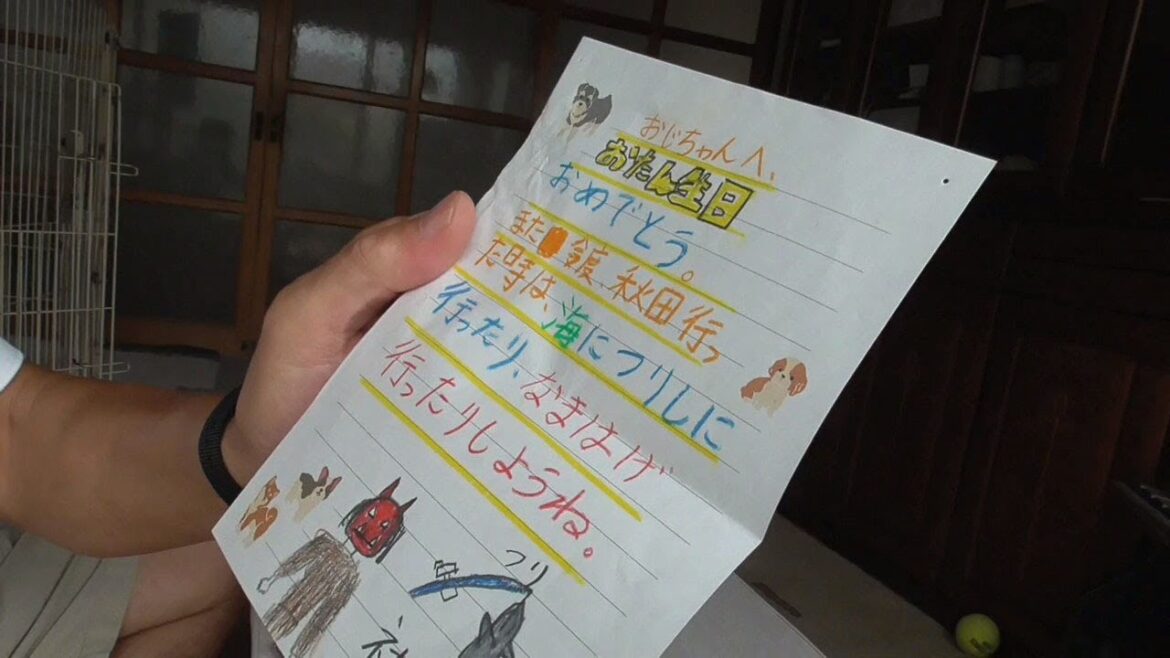 おじちゃんへ、
おたん生日
おめでとう。
また 秋田行っ
た時は、海につりしに
行ったり、なまはげ
行ったりしようね。
つり